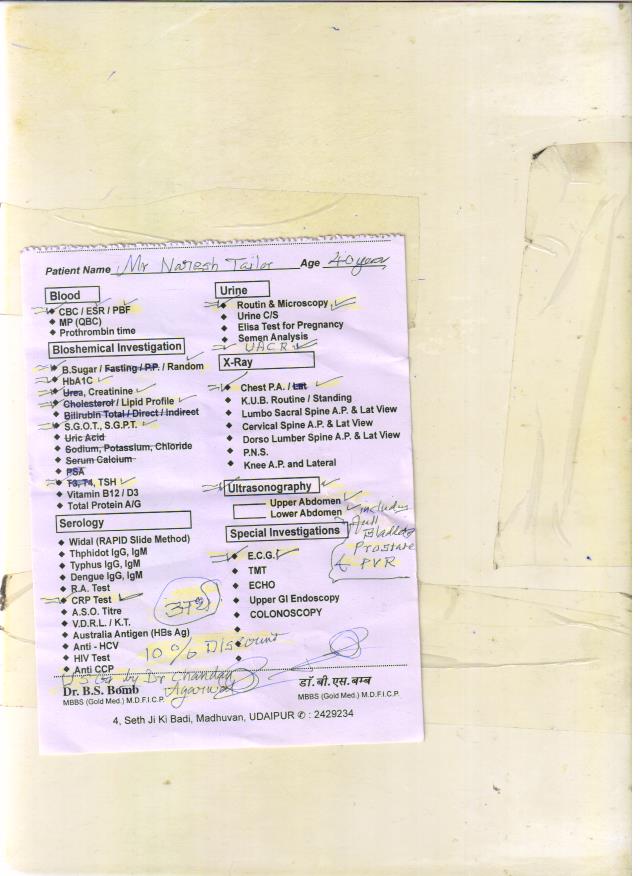 Patient Name Mr Naresh Tailor Age 40 year
Blood
CBC / ESR / PBF
MP (QBC)
Prothrombin time
Bioshemical Investigation
B.Sugar / Fasting / P.P. / Random
HbA1C
Urea, Creatinine
Cholesterol / Lipid Profile
Bilirubin Total / Direct / Indirect
S.G.O.T., S.G.P.T.
Uric Acid
Sodium, Potassium, Chloride
Serum Calcium
PSA
T3, T4, TSH
Vitamin B12 / D3
Total Protein A/G
Serology
Widal (RAPID Slide Method)
Thphidot IgG, IgM
Typhus IgG, IgM
Dengue IgG, IgM
R.A. Test
CRP Test
A.S.O. Titre
V.D.R.L. / K.T.
Australia Antigen (HBs Ag)
Anti - HCV
HIV Test
Anti CCP
Urine
Routin & Microscopy
Urine C/S
Elisa Test for Pregnancy
Semen Analysis
UACR
X-Ray
Chest P.A. / Lat
K.U.B. Routine / Standing
Lumbo Sacral Spine A.P. & Lat View
Cervical Spine A.P. & Lat View
Dorso Lumber Spine A.P. & Lat View
P.N.S.
Knee A.P. and Lateral
Ultrasonography
Upper Abdomen
Lower Abdomen
includes
full
Bladder
Prostate
& PVR
Special Investigations
E.C.G.
TMT
ECHO
Upper GI Endoscopy
COLONOSCOPY
10% Discount
USG by Dr Chandan
Agarwal
Dr. B.S. Bomb
MBBS (Gold Med.) M.D.F.I.C.P.
डॉ. बी. एस. बम्ब
MBBS (Gold Med.) M.D.F.I.C.P.
4, Seth Ji Ki Badi, Madhuvan, UDAIPUR ✆ : 2429234